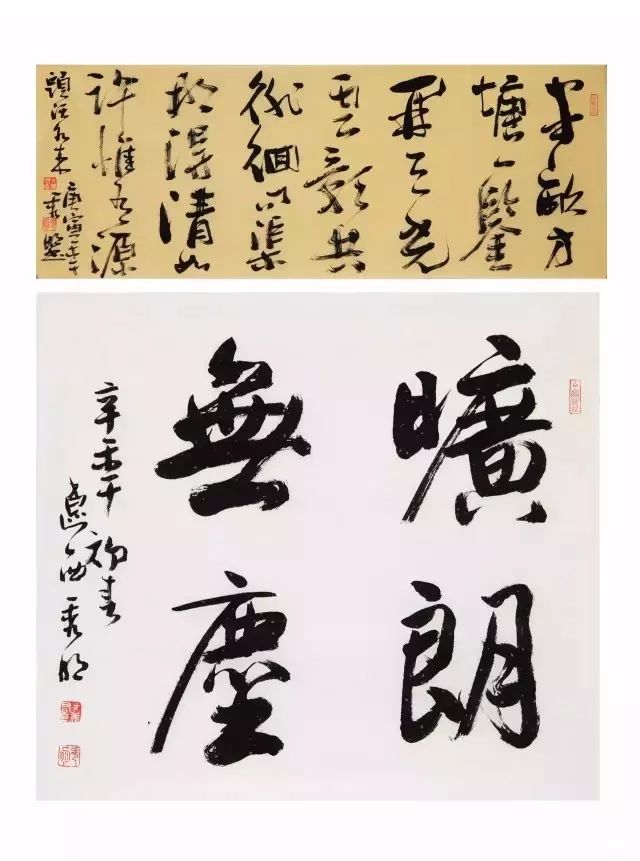 半畝方
塘一鑒
開天光
雲影共
徘徊问渠
那得清如
許惟有源
頭活水來
庚寅年
曠朗
無塵
辛卯年初春
西秀明